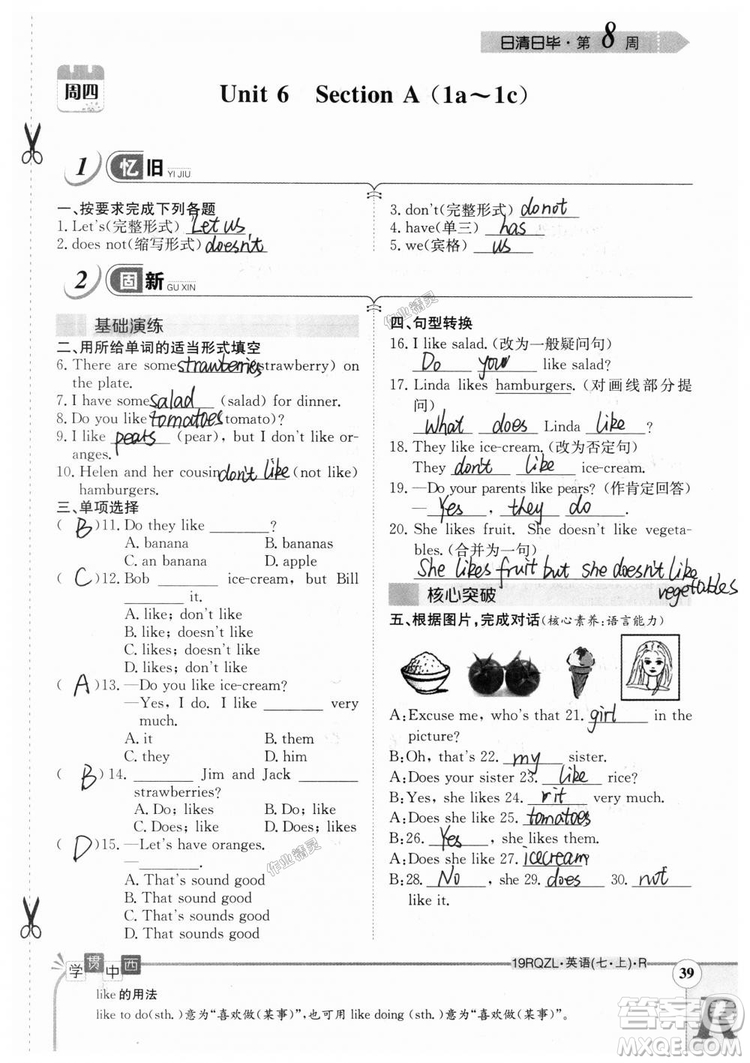 日清日毕·第8周
周四
Unit 6 Section A (1a～1c)
1 忆旧 YI JIU
一、按要求完成下列各题
1. Let's(完整形式) Let us
2. does not(缩写形式) doesn't
3. don't(完整形式) do not
4. have(单三) has
5. we(宾格) us
2 固新 GU XIN
基础演练
二、用所给单词的适当形式填空
6. There are some strawberries (strawberry) on
the plate.
7. I have some salad (salad) for dinner.
8. Do you like tomatoes (tomato)?
9. I like pears (pear), but I don't like or-
anges.
10. Helen and her cousin don't like (not like)
hamburgers.
三、单项选择
( B )11. Do they like ________?
A. banana B. bananas
C. an banana D. apple
( C )12. Bob ________ ice-cream, but Bill
________ it.
A. like; don't like
B. like; doesn't like
C. likes; doesn't like
D. likes; don't like
( A )13. —Do you like ice-cream?
—Yes, I do. I like ________ very
much.
A. it B. them
C. they D. him
( B )14. ________ Jim and Jack ________
strawberries?
A. Do; likes B. Do; like
C. Does; like D. Does; likes
( D )15. —Let's have oranges.
—________.
A. That sound good
B. That's sound good
C. That's sounds good
D. That sounds good
四、句型转换
16. I like salad. (改为一般疑问句)
Do you like salad?
17. Linda likes hamburgers. (对画线部分提
问)
What does Linda like?
18. They like ice-cream. (改为否定句)
They don't like ice-cream.
19. —Do your parents like pears? (作肯定回答)
—Yes, they do.
20. She likes fruit. She doesn't like vegeta-
bles. (合并为一句)
She likes fruit but she doesn't like
vegetables
核心突破
五、根据图片,完成对话(核心素养:语言能力)
A: Excuse me, who's that 21. girl in the
picture?
B: Oh, that's 22. my sister.
A: Does your sister 23. like rice?
B: Yes, she likes 24. rit very much.
A: Does she like 25. tomatoes?
B: 26. Yes, she does.
A: Does she like 27. icecream?
B: 28. No, she 29. does 30. not
like it.
作业精灵
作业精灵
学贯中西
19RQZL·英语(七·上)·R
39
like 的用法
like to do(sth.)意为“喜欢做(某事)”,也可用 like doing (sth.)意为“喜欢做(某事)”。
答案圈
MXQE.COM